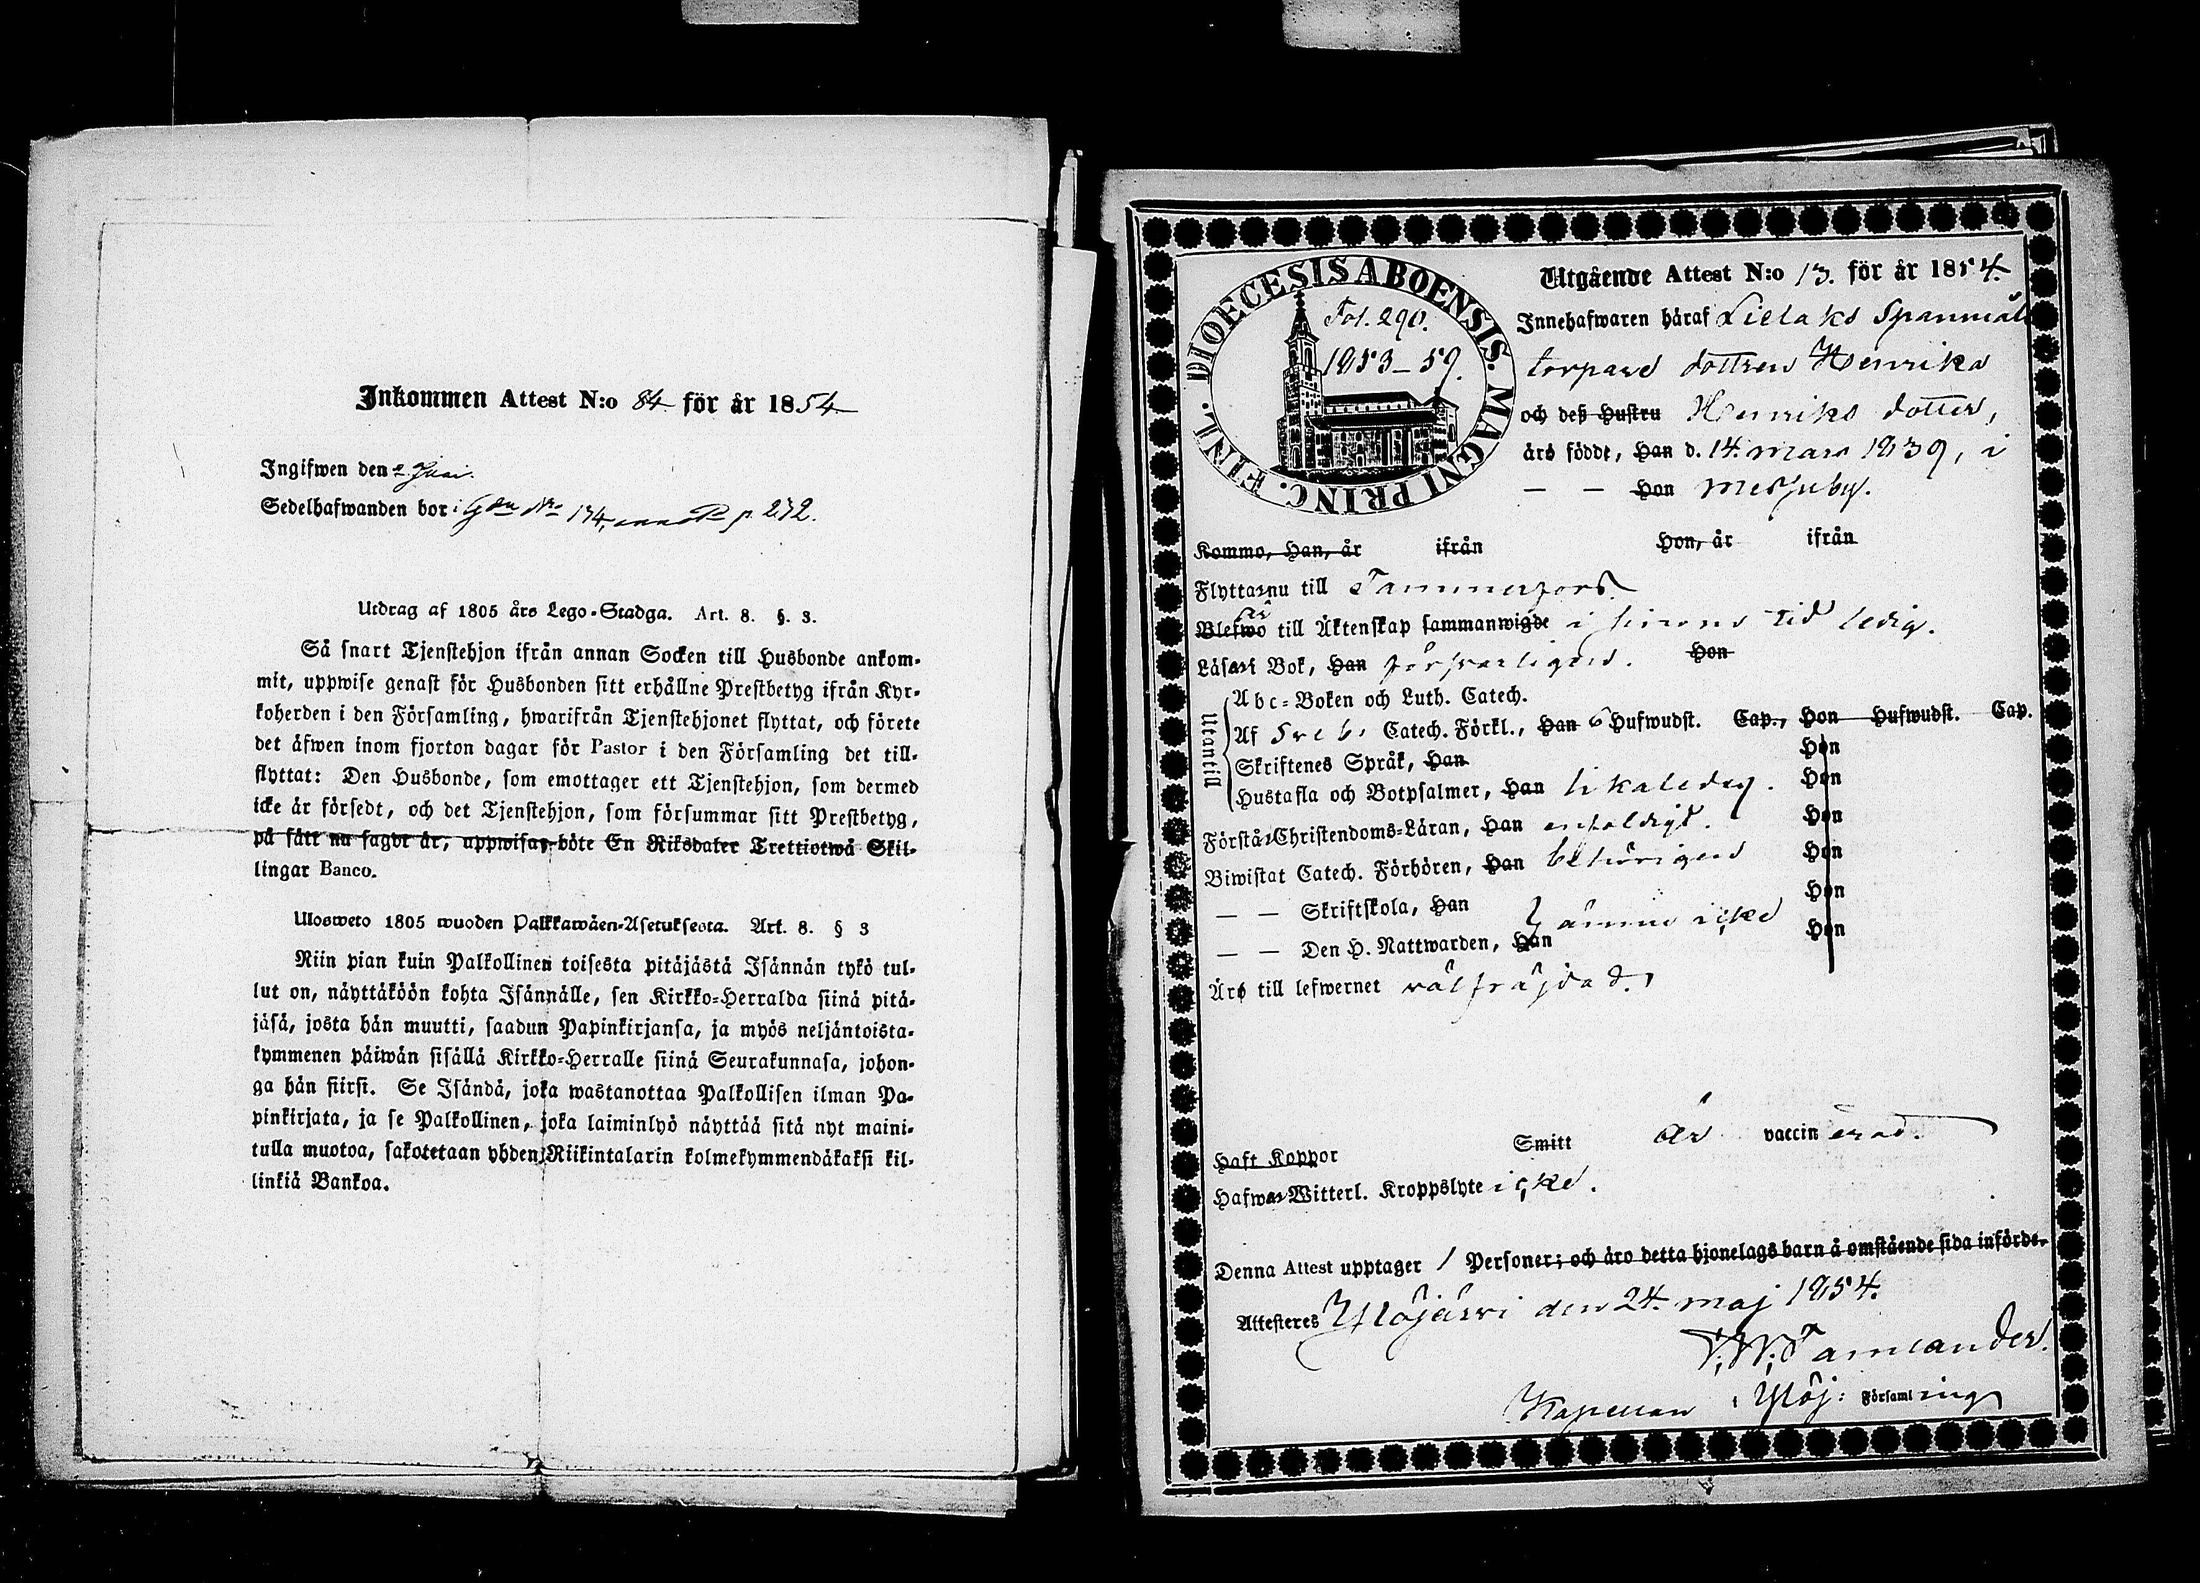 Inkommen Attest N:o 84 för år 1854
Ingifwen den 2 Juni.
Sedelhafwanden bor i Gdn No 174, p. 272.
Utdrag af 1805 års Lego-Stadga. Art. 8. §. 3.
Så snart Tjenstehjon ifrån annan Socken till Husbonde ankom-
mit, uppwise genast för Husbonden sitt erhållne Prestbetyg ifrån Kyr-
koherden i den Församling, hwarifrån Tjenstehjonet flyttat, och förete
det äfwen inom fjorton dagar för Pastor i den Församling det till-
flyttat: Den Husbonde, som emottager ett Tjenstehjon, som dermed
icke är försedt, och det Tjenstehjon, som försummar sitt Prestbetyg,
på sätt nu sagdt är, uppwisa, böte En Riksdaler Trettiotwå Skil-
lingar Banco.
Ulosweto 1805 wuoden Palkkawäen-Asetuksesta. Art. 8. § 3
Niin pian kuin Palkollinen toisesta pitäjästä Isännän tykö tul-
lut on, näyttäköön kohta Isännälle, sen Kirkko-Herralda siinä pitä-
jäsä, josta hän muutti, saadun Papinkirjansa, ja myös neljäntoista-
kymmenen päiwän sisällä Kirkko-Herralle siinä Seurakunnasa, johon-
ga hän siirsi. Se Isändä, joka wastanottaa Palkollisen ilman Pa-
pinkirjata, ja se Palkollinen, joka laiminlyö näyttää sitä nyt maini-
tulla muotoa, sakotetaan yhden Riikintalarin kolmekymmendäkaksi kil-
linkiä Bankoa.
DIOECESIS ABOENSIS. MAGNI PRINC. FINL.
Fol. 290.
1853–59.
Utgående Attest N:o 13. för år 1854.
Innehafwaren häraf Lielaks Spannmåls
torpare dottren Henrika
och deß Hustru Henriks dotter,
äro födde, Han d. 14. mars 1839, i
— — Hon Messuby.
Kommo, Han, år ifrån Hon, år ifrån
Flyttar nu till Tammerfors.
är
Blefwo till Äktenskap sammanwigde i hinns tid ledig.
Läsa i Bok, Han försvarligen. Hon
Utantill
Abc-Boken och Luth. Catech.
Af Sveb. Catech. Förkl., Han 6 Hufwudst. Cap., Hon Hufwudst. Cap.
Skriftenes Språk, Han Hon
Hustafla och Botpsalmer, Han likaledes. Hon
Förstår Christendoms-Läran, Han enfaldigt. Hon
Biwistat Catech. Förhören, Han behörigen Hon
— — Skriftskola, Han ännu icke Hon
— — Den H. Nattwarden, Han Hon
Äro till lefwernet välfräjdad.
Haft Koppor Smitt är vaccinerad.
Hafwa Witterl. Kroppslyte icke.
Denna Attest upptager 1 Personer; och äro detta hjonelags barn å omstående sida införde.
Attesteres Ylöjärvi den 24. maj 1854.
V. W. Tamlander.
Kapellan i Ylöj: Församling